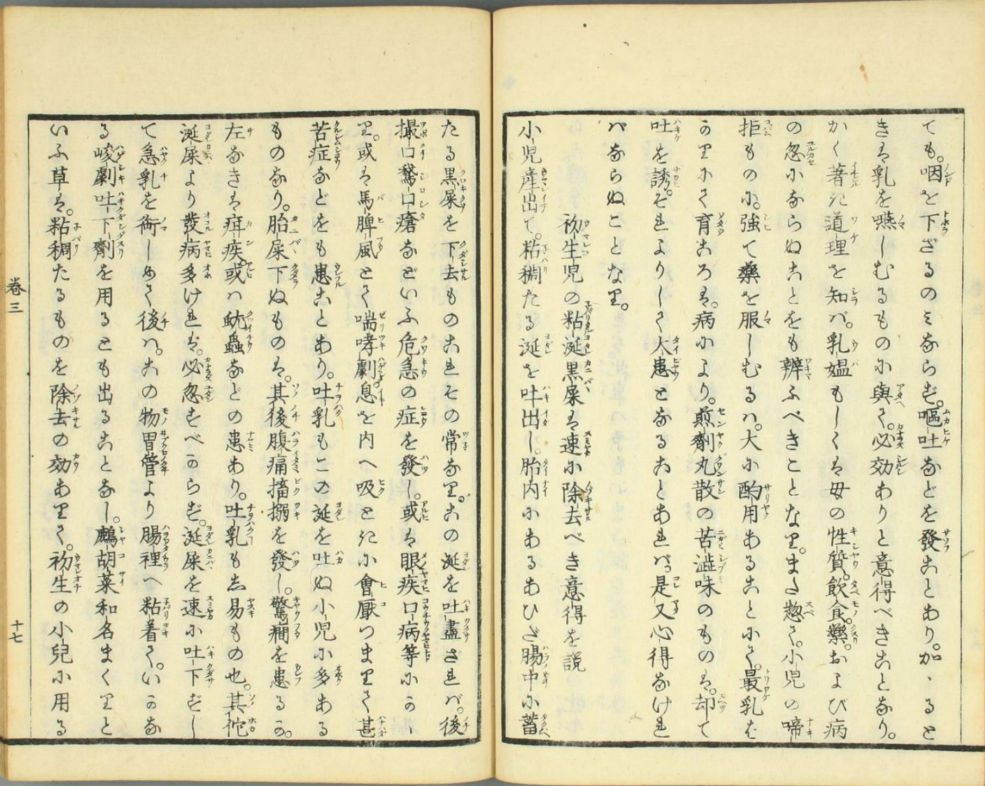 ても。咽を下ざるのミならず。嘔吐などを發ことあり。加〻ると
きは乳を嚥しむるものに與て。必効ありと意得べきことなり。
かく著き道理を知バ。乳媼もしくは母の性質。飲食。藥。および病
の忽にならぬことをも辨ふべきことなり。また惣て。小児の啼
拒もの尓。強て藥を服しむるハ。大に酌用あることにて。最乳を
のミにて育ころは。病により。煎劑丸散の苦澁味のものは。却て
吐を誘。それよりして大患となることあれバ。是又心得なけれ
バならぬことなり。
初生児の粘涎黒屎は速に除去べき意得を説
小児産出て。粘稠たる涎を吐出し。胎内にあるあひだ腸中に蓄
たる黒屎を下去ものこれその常なり。この涎を吐盡ざれバ。後
撮口鵞口瘡などいふ危急の症を發し。或は眼疾口病等にかゝ
り。或は馬脾風とて喘哮劇。息を内へ吸ときに會厭つまりて甚
苦症などをも患ことあり。吐乳もこの涎を吐ぬ小児に多ある
ものなり。胎屎下ぬものは。其後腹痛搐搦を發し。驚癇を患るか。
左なきは疳疾或ハ蚘蟲などの患あり。吐乳も亦易もの也。其他
涎屎より發病多けれは。必忽すべからず。涎屎を速に吐下ずし
て急乳を銜しめて後ハ。この物胃管より腸裡へ粘着て。いかな
る峻劇吐下劑を用るとも出ることなし。鷓胡菜和名まくりと
いふ草は。粘稠たるものを除去の効ありて。初生の小兒に用る
卷三
十七